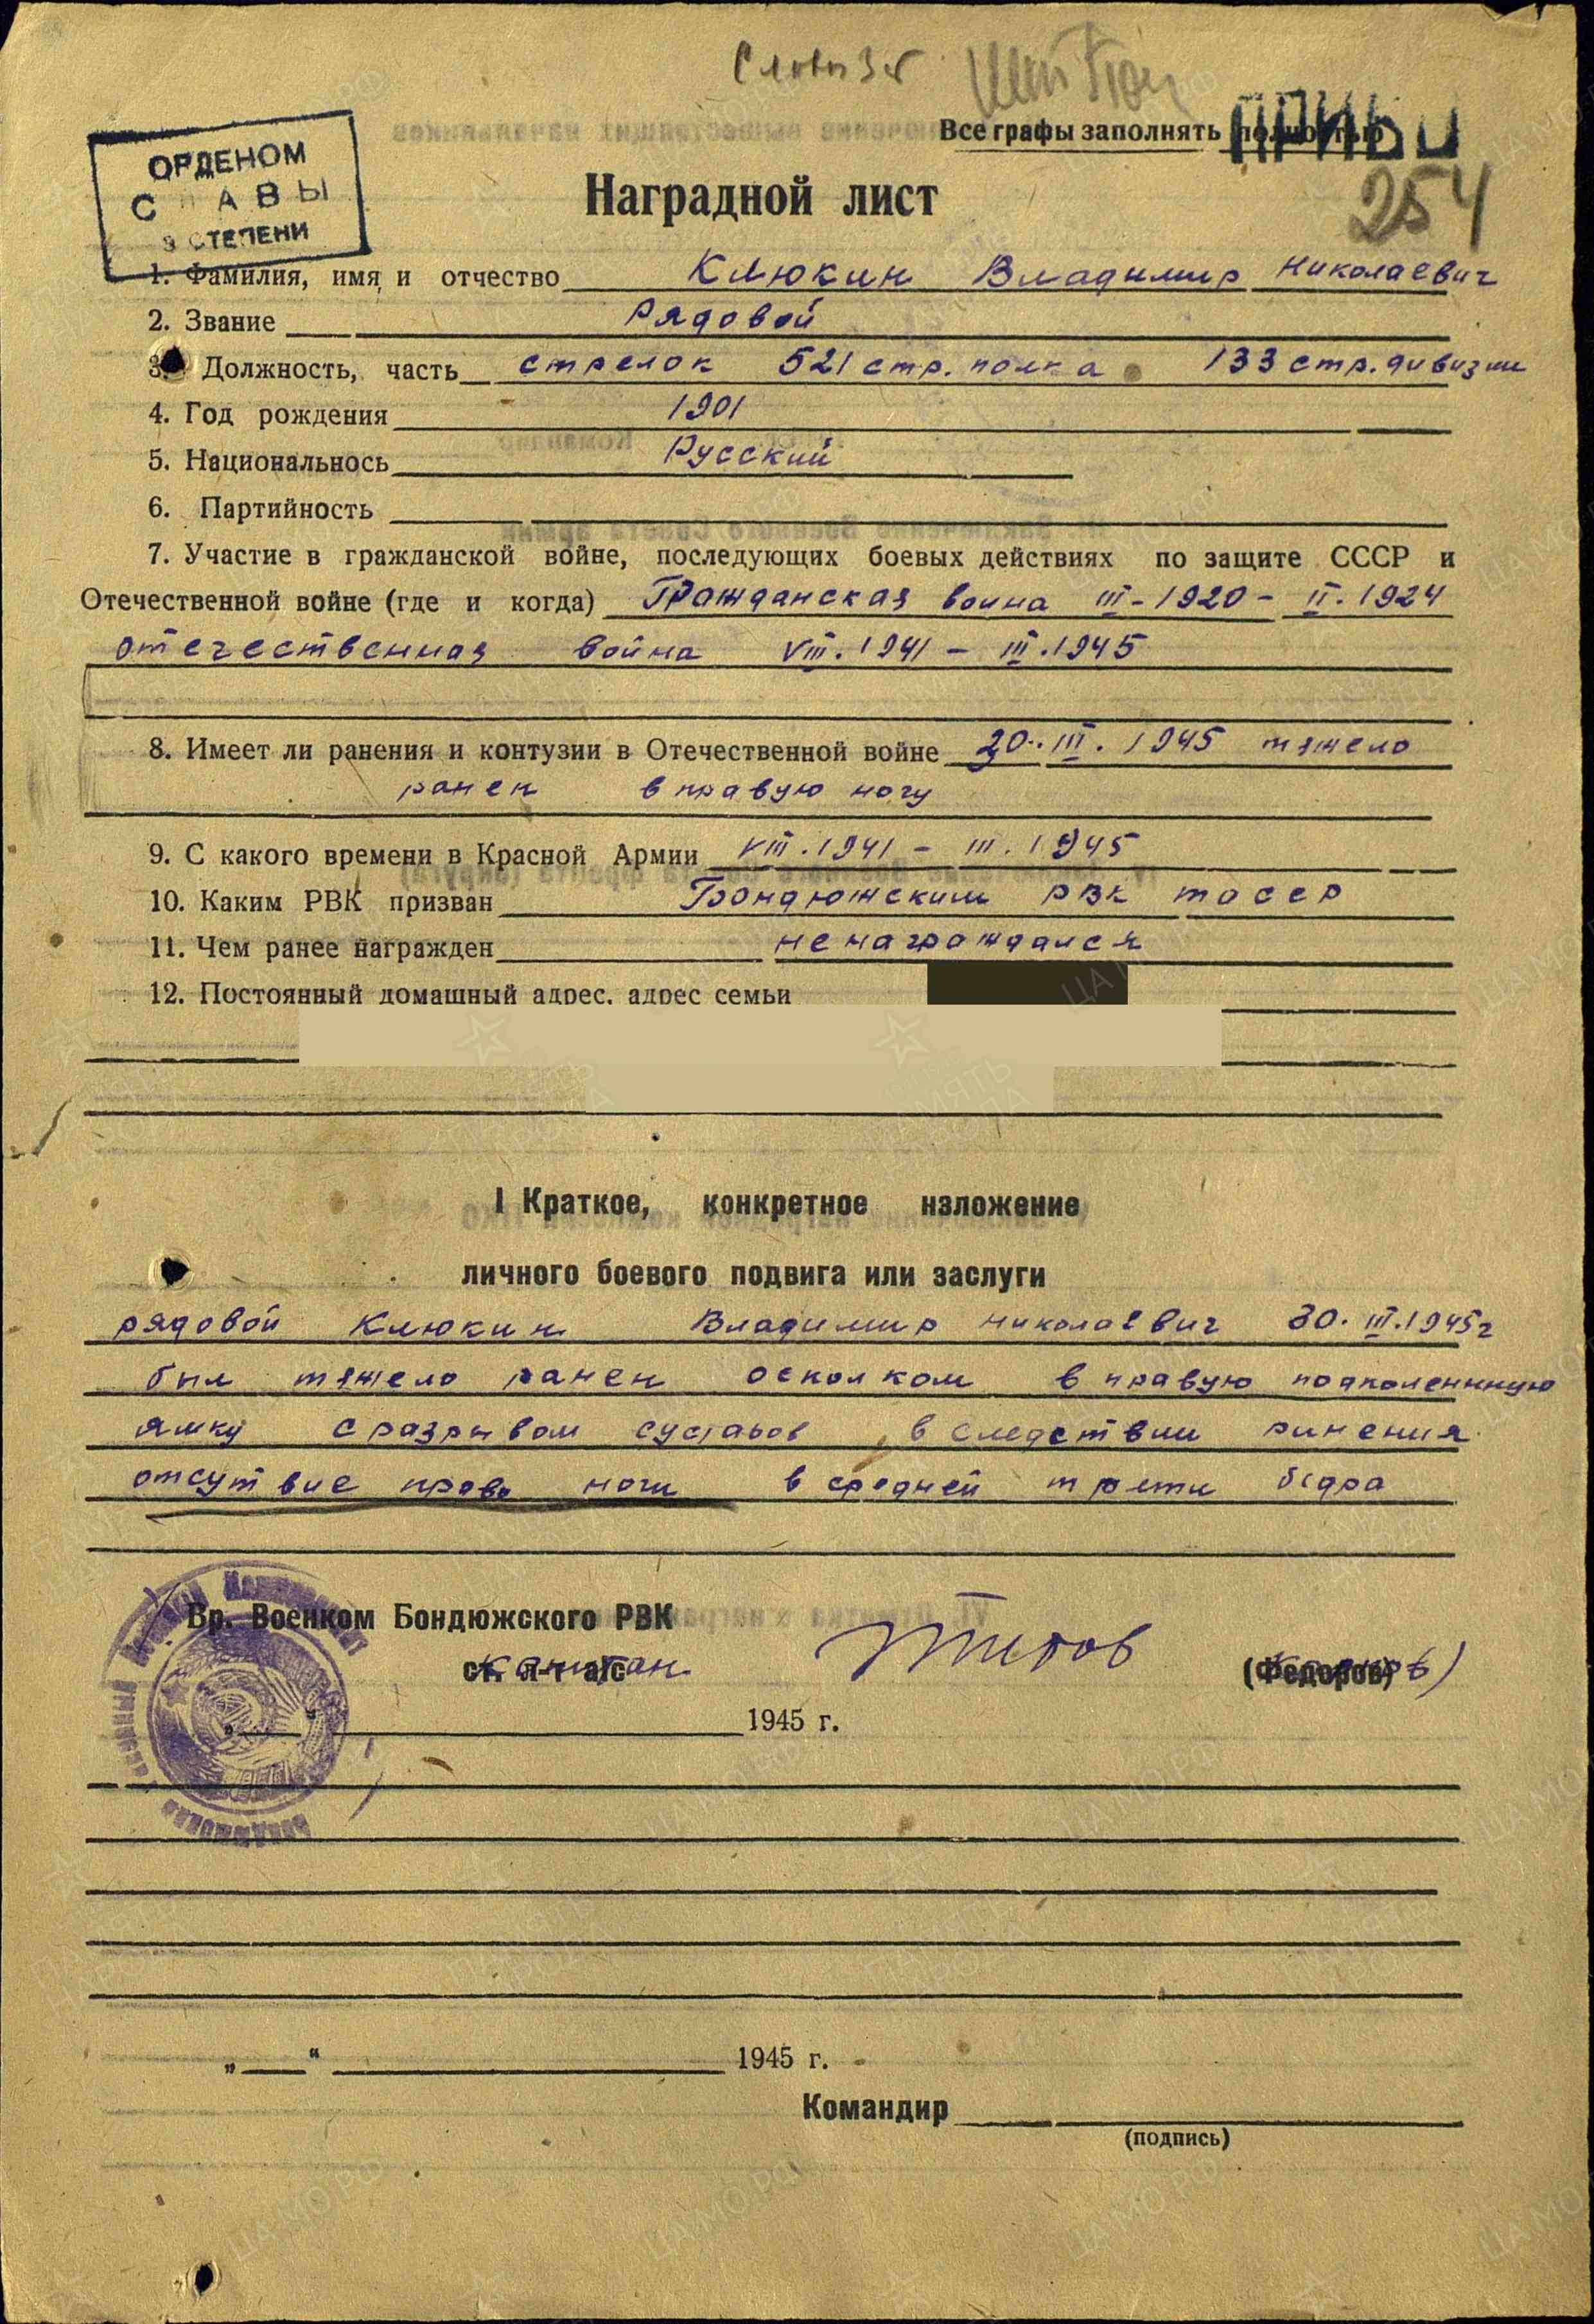 Славы 3 ст
Все графы заполнять полностью
254
ОРДЕНОМ
СЛАВЫ
3 СТЕПЕНИ
Наградной лист
1. Фамилия, имя и отчество Клюкин Владимир Николаевич
2. Звание Рядовой
3. Должность, часть стрелок 521 стр. полка 133 стр. дивизии
4. Год рождения 1901
5. Национальнось Русский
6. Партийность
7. Участие в гражданской войне, последующих боевых действиях по защите СССР и
Отечественной войне (где и когда) Гражданская война III-1920 - II.1924
отечественная война VIII.1941 - III.1945
8. Имеет ли ранения и контузии в Отечественной войне 30.III.1945 тяжело
ранен в правую ногу
9. С какого времени в Красной Армии VIII.1941 - III.1945
10. Каким РВК призван Бондюжским РВК ТАССР
11. Чем ранее награжден не награждался
12. Постоянный домашный адрес, адрес семьи
I Краткое, конкретное изложение
личного боевого подвига или заслуги
рядовой Клюкин Владимир Николаевич 30.III.1945г
был тяжело ранен осколком в правую подколеннную
ямку с разрывом суставов в следствии ранения
отсутвие право ноги в средней трети бедра
Вр. Военком Бондюжского РВК
ст. л-т а/с капитан Титов (Федоров)
„ “ 1945 г.
„ “ 1945 г.
Командир
(подпись)